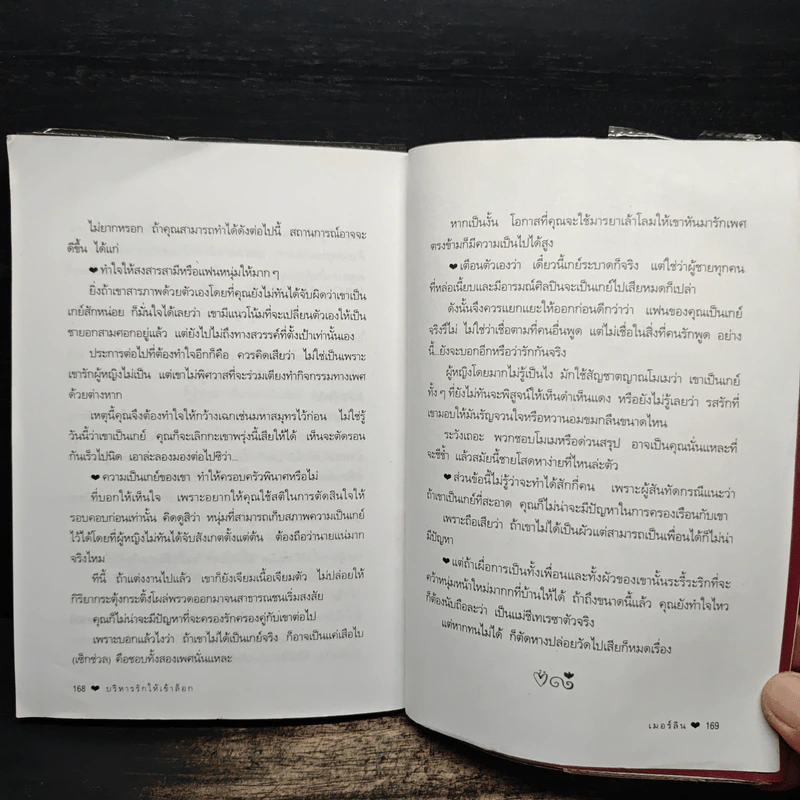 ไม่ยากหรอก ถ้าคุณสามารถทำได้ดังต่อไปนี้ สถานการณ์อาจจะ
ดีขึ้น ได้แก่
❤ ทำใจให้สงสารสามีหรือแฟนหนุ่มให้มาก ๆ
ยิ่งถ้าเขาสารภาพด้วยตัวเองโดยที่คุณยังไม่ทันได้จับผิดว่าเขาเป็น
เกย์สักหน่อย ก็มั่นใจได้เลยว่า เขามีแนวโน้มที่จะเปลี่ยนตัวเองให้เป็น
ชายอกสามศอกอยู่แล้ว แต่ยังไปไม่ถึงทางสวรรค์ที่ตั้งเป้าเท่านั้นเอง
ประการต่อไปที่ต้องทำใจอีกก็คือ ควรคิดเสียว่า ไม่ใช่เป็นเพราะ
เขารักผู้หญิงไม่เป็น แต่เขาไม่พิศวาสที่จะร่วมเตียงทำกิจกรรมทางเพศ
ด้วยต่างหาก
เหตุนี้คุณจึงต้องทำใจให้กว้างเฉกเช่นมหาสมุทรไว้ก่อน ไม่ใช่รู้
วันนี้ว่าเขาเป็นเกย์ คุณก็จะเลิกกะเขาพรุ่งนี้เสียให้ได้ เห็นจะตัดรอน
กันเร็วไปนิด เอาล่ะลองมองต่อไปซิว่า...
❤ ความเป็นเกย์ของเขา ทำให้ครอบครัวพินาศหรือไม่
ที่บอกให้เห็นใจ เพราะอยากให้คุณใช้สติในการตัดสินใจให้
รอบคอบก่อนเท่านั้น คิดดูสิว่า หนุ่มที่สามารถเก็บสภาพความเป็นเกย์
ไว้ได้โดยที่ผู้หญิงไม่ทันได้จับสังเกตตั้งแต่ต้น ต้องถือว่านายแน่มาก
จริงไหม
ทีนี้ ถ้าแต่งงานไปแล้ว เขาก็ยังเจียมเนื้อเจียมตัว ไม่ปล่อยให้
กิริยากระตุ้งกระติ้งโผล่พรวดออกมาจนสาธารณชนเริ่มสงสัย
คุณก็ไม่น่าจะมีปัญหาที่จะครองรักครองคู่กับเขาต่อไป
เพราะบอกแล้วไงว่า ถ้าเขาไม่ได้เป็นเกย์จริง ก็อาจเป็นแค่เสือไบ
(เซ็กช่วล) คือชอบทั้งสองเพศนั่นแหละ
168 ❤ บริหารรักให้เข้าล็อก
หากเป็นงั้น โอกาสที่คุณจะใช้มารยาเล้าโลมให้เขาหันมารักเพศ
ตรงข้ามก็มีความเป็นไปได้สูง
❤ เตือนตัวเองว่า เดี๋ยวนี้เกย์ระบาดก็จริง แต่ใช่ว่าผู้ชายทุกคน
ที่หล่อเนี้ยบและมีอารมณ์ศิลปินจะเป็นเกย์ไปเสียหมดก็เปล่า
ดังนั้นจึงควรแยกแยะให้ออกก่อนดีกว่าว่า แฟนของคุณเป็นเกย์
จริงรึไม่ ไม่ใช่ว่าเชื่อตามที่คนอื่นพูด แต่ไม่เชื่อในสิ่งที่คนรักพูด อย่าง
นี้..ยังจะบอกอีกหรือว่ารักกันจริง
ผู้หญิงโดยมากไม่รู้เป็นไง มักใช้สัญชาตญาณโมเมว่า เขาเป็นเกย์
ทั้ง ๆ ที่ยังไม่ทันจะพิสูจน์ให้เห็นดำเห็นแดง หรือยังไม่รู้เลยว่า รสรักที่
เขามอบให้มันรัญจวนใจหรือหวานอมขมกลืนขนาดไหน
ระวังเถอะ พวกชอบโมเมหรือด่วนสรุป อาจเป็นคุณนั่นแหละที่
จะชีช้ำ แล้วสมัยนี้ชายโสดหาง่ายที่ไหนล่ะตัว
❤ ส่วนข้อนี้ไม่รู้ว่าจะทำได้สักกี่คน เพราะผู้สันทัดกรณีแนะว่า
ถ้าเขาเป็นเกย์ที่สะอาด คุณก็ไม่น่าจะมีปัญหาในการครองเรือนกับเขา
เพราะถือเสียว่า ถ้าเขาไม่ได้เป็นผัวแต่สามารถเป็นเพื่อนได้ก็ไม่น่า
มีปัญหา
❤ แต่ถ้าเผื่อการเป็นทั้งเพื่อนและทั้งผัวของเขานั้นระริ้ระรี้กที่จะ
คว้าหนุ่มหน้าใหม่มากกที่บ้านให้ได้ ถ้าถึงขนาดนี้แล้ว คุณยังทำใจไหว
ก็ต้องนับถือละว่า เป็นแม่ชีเทเรซาตัวจริง
แต่หากทนไม่ได้ ก็ตัดหางปล่อยวัดไปเสียก็หมดเรื่อง
เมอร์ลิน ❤ 169